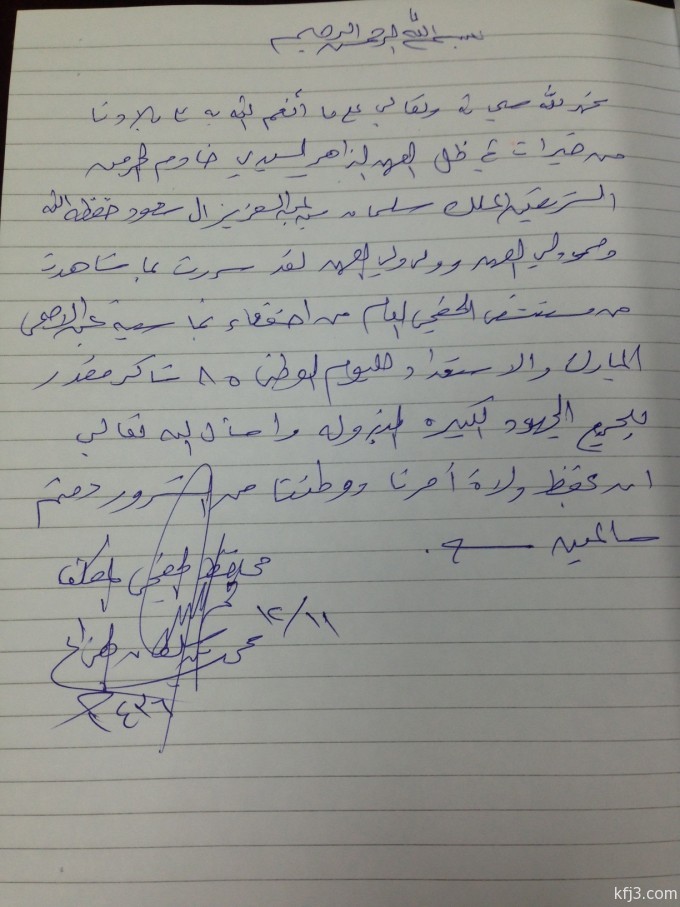 بسم الله الرحمن الرحيم
نحمد لله سبحانه وتعالى على ما أنعم الله به على بلادنا
من خيرات في ظل العهد الزاهر لسيدي خادم الحرمين
الشريفين الملك سلمان بن عبدالعزيز ال سعود حفظه الله
وسمو ولي العهد وولي ولي العهد لقد سررت بما شاهدت
من مستشفى الخفجي العام من احتفاء بمناسبة عيد الاضحى
المبارك والاستعداد لليوم الوطني ٨٥ شاكر مقدر
للجميع الجهود الكبيره المبذوله واسأل الله تعالى
ان يحفظ ولاة أمرنا ووطننا من الشرور دمتم
سالمين
محافظ الخفجي المكلف
١٢/١١
محمد بن سلطان الهزاع
١٤٣٦
kfj3.com